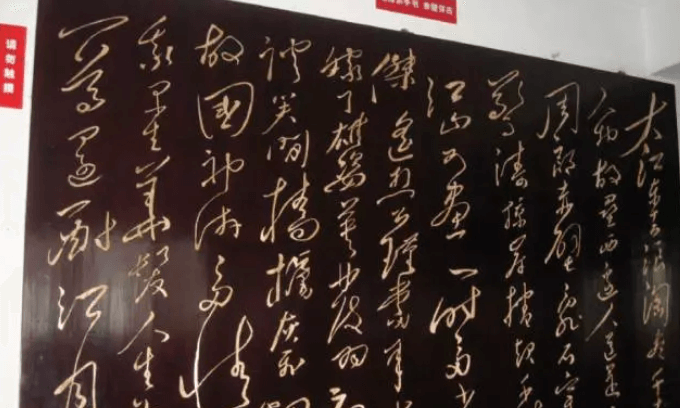 大江东去浪淘尽千
人物故垒西边人道是
周郎赤壁乱石穿
惊涛掠岸捲起千
江山如画一时多少
傑遥想公瑾当年
嫁了雄姿英发羽
谈笑间樯橹灰飞
故國神游多情
我早生华发人生
一尊还酹江月
请勿触摸
手书 赤壁怀古